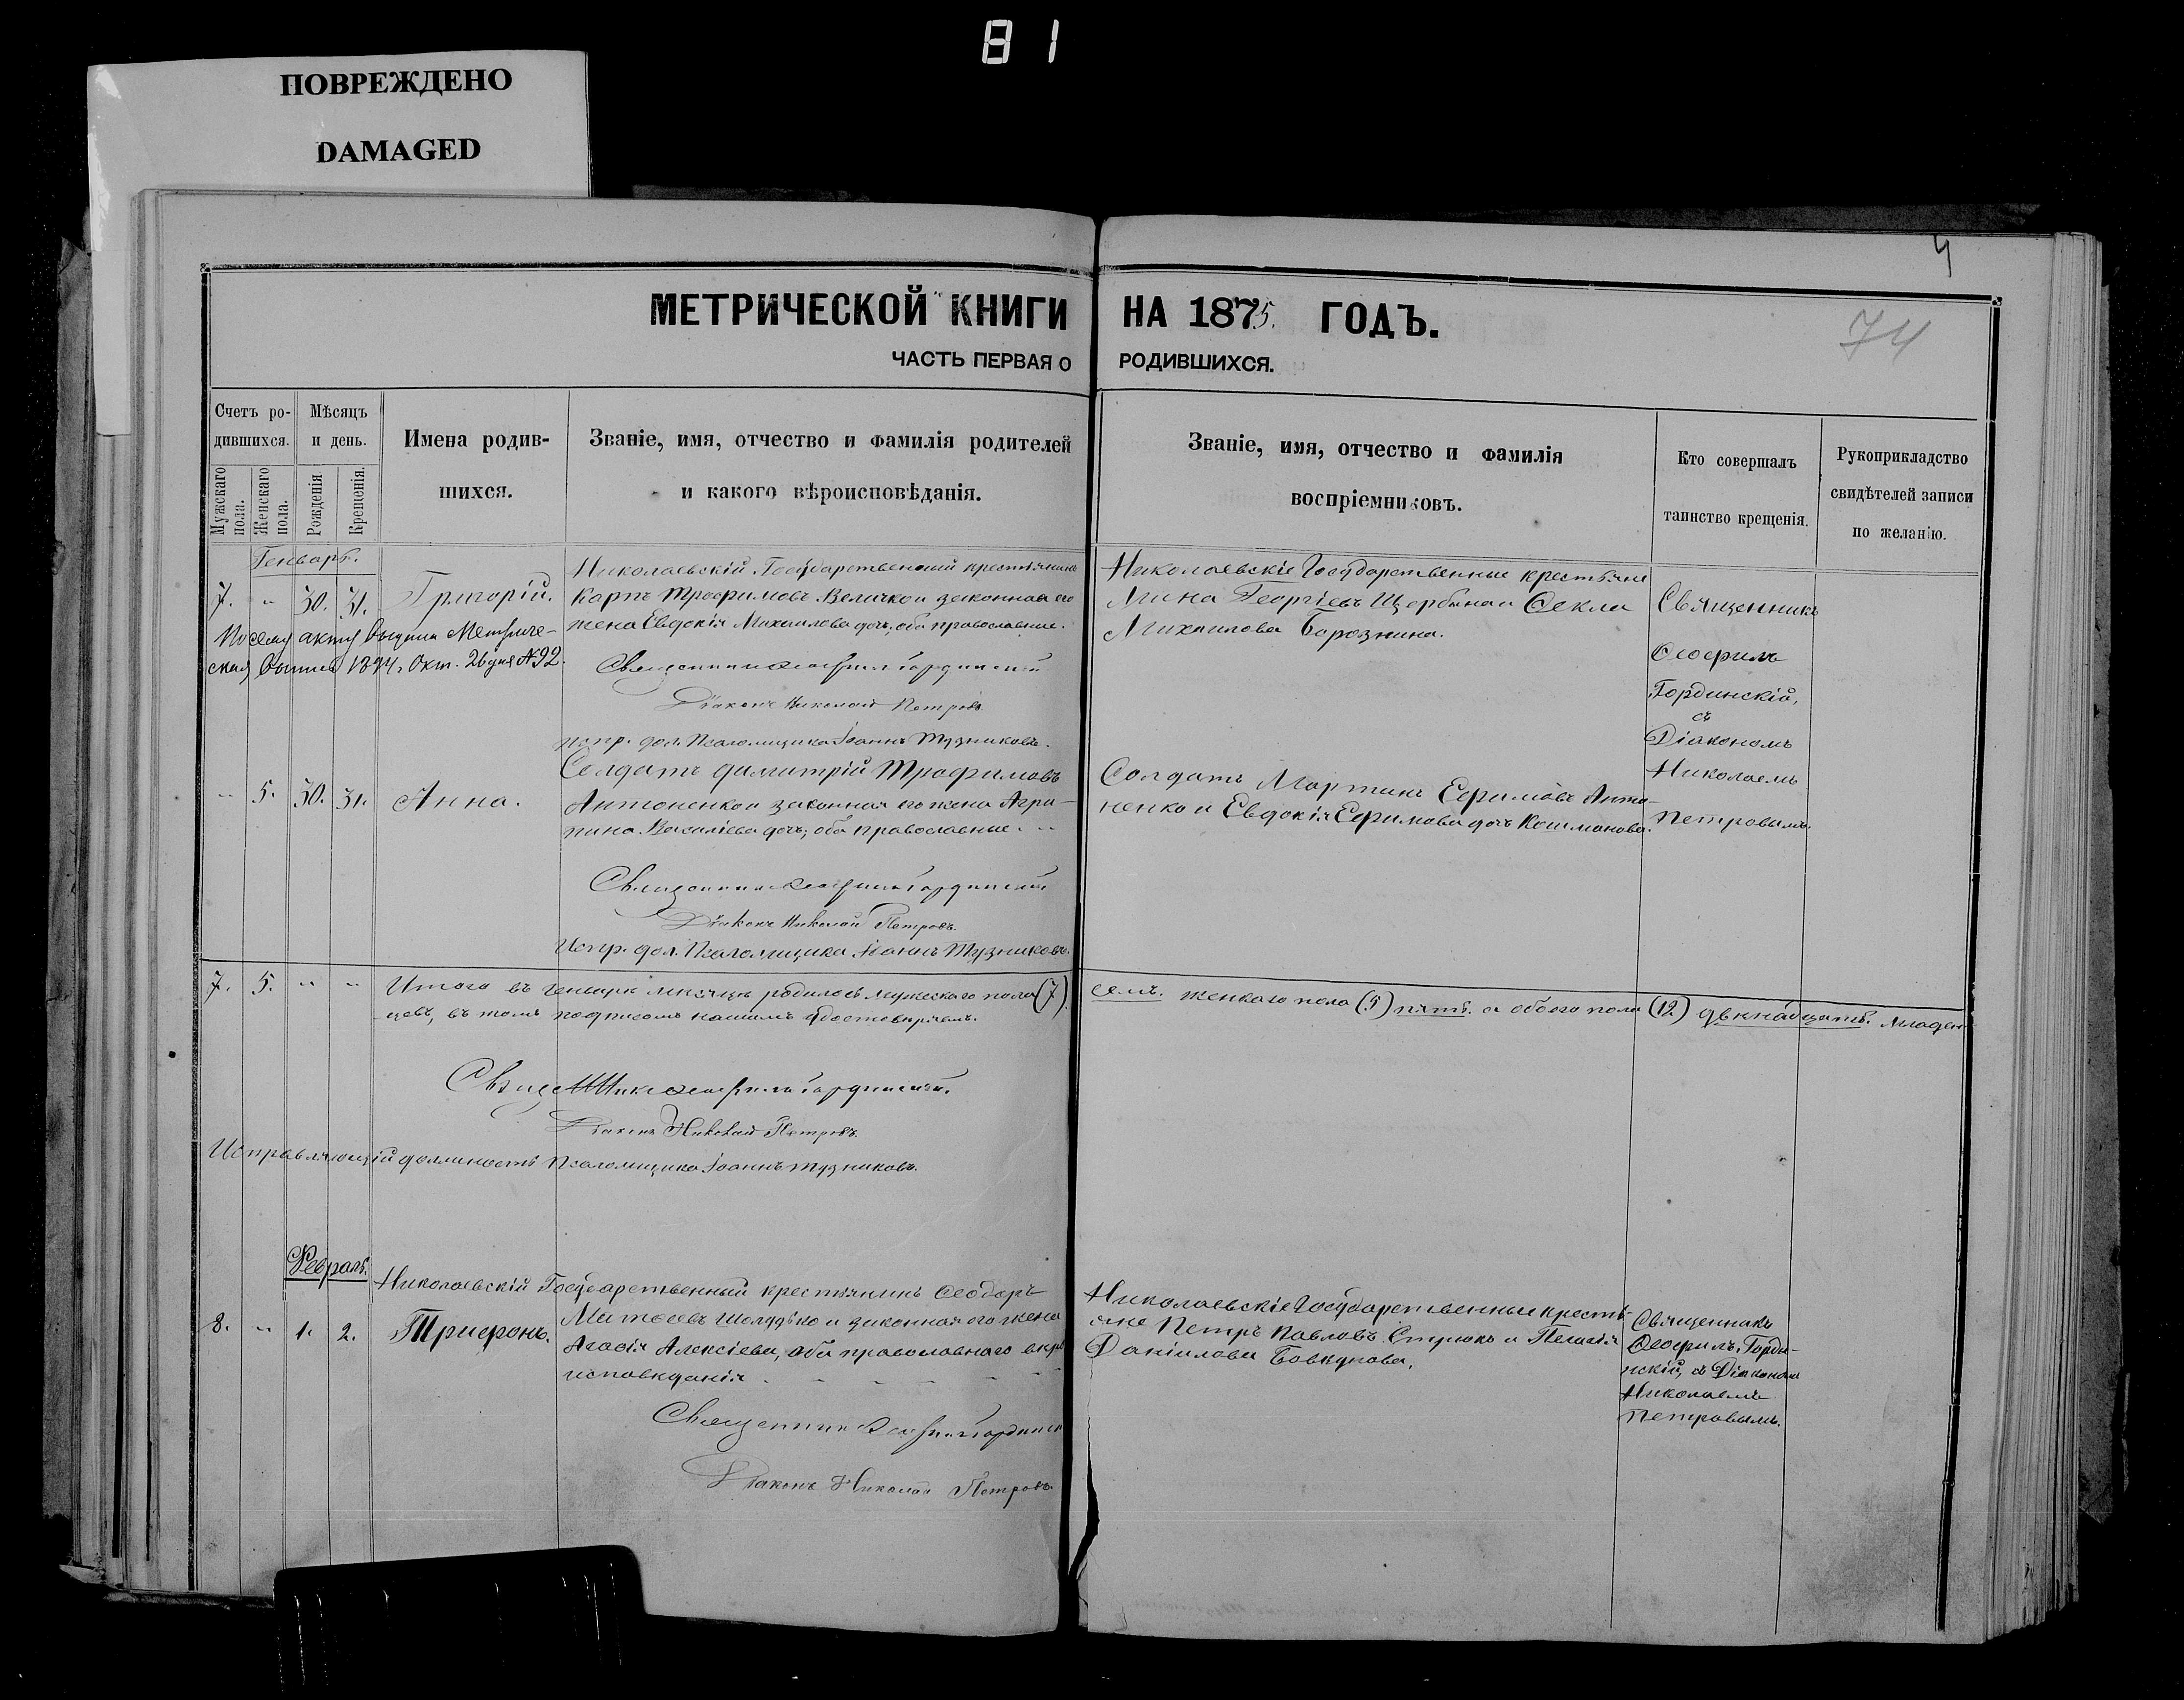 81
ПОВРЕЖДЕНО
DAMAGED
4
74
МЕТРИЧЕСКОЙ КНИГИ НА 1875. ГОДЪ.
ЧАСТЬ ПЕРВАЯ О РОДИВШИХСЯ.
Счетъ ро-
дившихся.
Мужскаго пола.
Женскаго пола.
Мѣсяцъ
и день.
Рожденія
Крещенія.
Имена родив-
шихся.
Званіе, имя, отчество и фамилія родителей
и какого вѣроисповѣданія.
Званіе, имя, отчество и фамилія
воспріемниковъ.
Кто совершалъ
таинство крещенія.
Рукоприкладство
свидѣтелей записи
по желанію.
Генварь.
7. " 30. 31. Григорій.
По сему акту выдана Метриче-
ская 1894 Окт. 26 дня №92.
Николаевскій Государственный крестьянинъ
Карпъ Трофимовъ Величко и законная его
жена Евдокія Михаилова дочь, оба православные.
Священникъ Ѳеофилъ Гординскій
Діаконъ Николай Петровъ
испр. дол. Псаломщика Іоаннъ Тузниковъ.
Николаевскіе Государственные крестьяне
Мина Георгіевъ Щербина и Ѳекла
Михаилова Борознина.
Священникъ
Ѳеофилъ
Гординскій,
съ
Діакономъ
Николаемъ
Петровымъ.
" 5. 30. 31. Анна.
Солдатъ Димитрій Трофимовъ
Антоненко и законная его жена Агри-
пина Василіева дочь; оба православные.
Священникъ Ѳеофилъ Гординскій
Діаконъ Николай Петровъ.
Испр. дол. Псаломщика Іоаннъ Тузниковъ.
Солдатъ Мартинъ Ефимовъ Анто-
ненко и Евдокія Ефимова дочь Кошманова.
7. 5. " " Итого въ Генварѣ мѣсяцѣ родилось мужескаго пола (7)
семь. женскаго пола (5) пять. а обоего пола (12) двѣнадцать. младен-
цевъ, въ томъ подписомъ нашимъ удостовѣряемъ.
Священникъ Ѳеофилъ Гординскій.
Діаконъ Николай Петровъ.
Исправляющій должность Псаломщика Іоаннъ Тузниковъ.
Февраль.
8. " 1. 2. Трифонъ.
Николаевскій Государственный крестьянинъ Ѳеодоръ
Матѳеевъ Шолудько и законная его жена
Агафія Алексіева, оба православнаго вѣро
исповѣданія.
Священникъ Ѳеофилъ Гординск
Діаконъ Николай Петровъ.
Николаевскіе Государственные кресть-
яне Петръ Павловъ Стрюкъ и Пелагія
Даніилова Бовкунова.
Священникъ
Ѳеофилъ Горди-
нскій, съ Діакономъ
Николаемъ
Петровымъ.